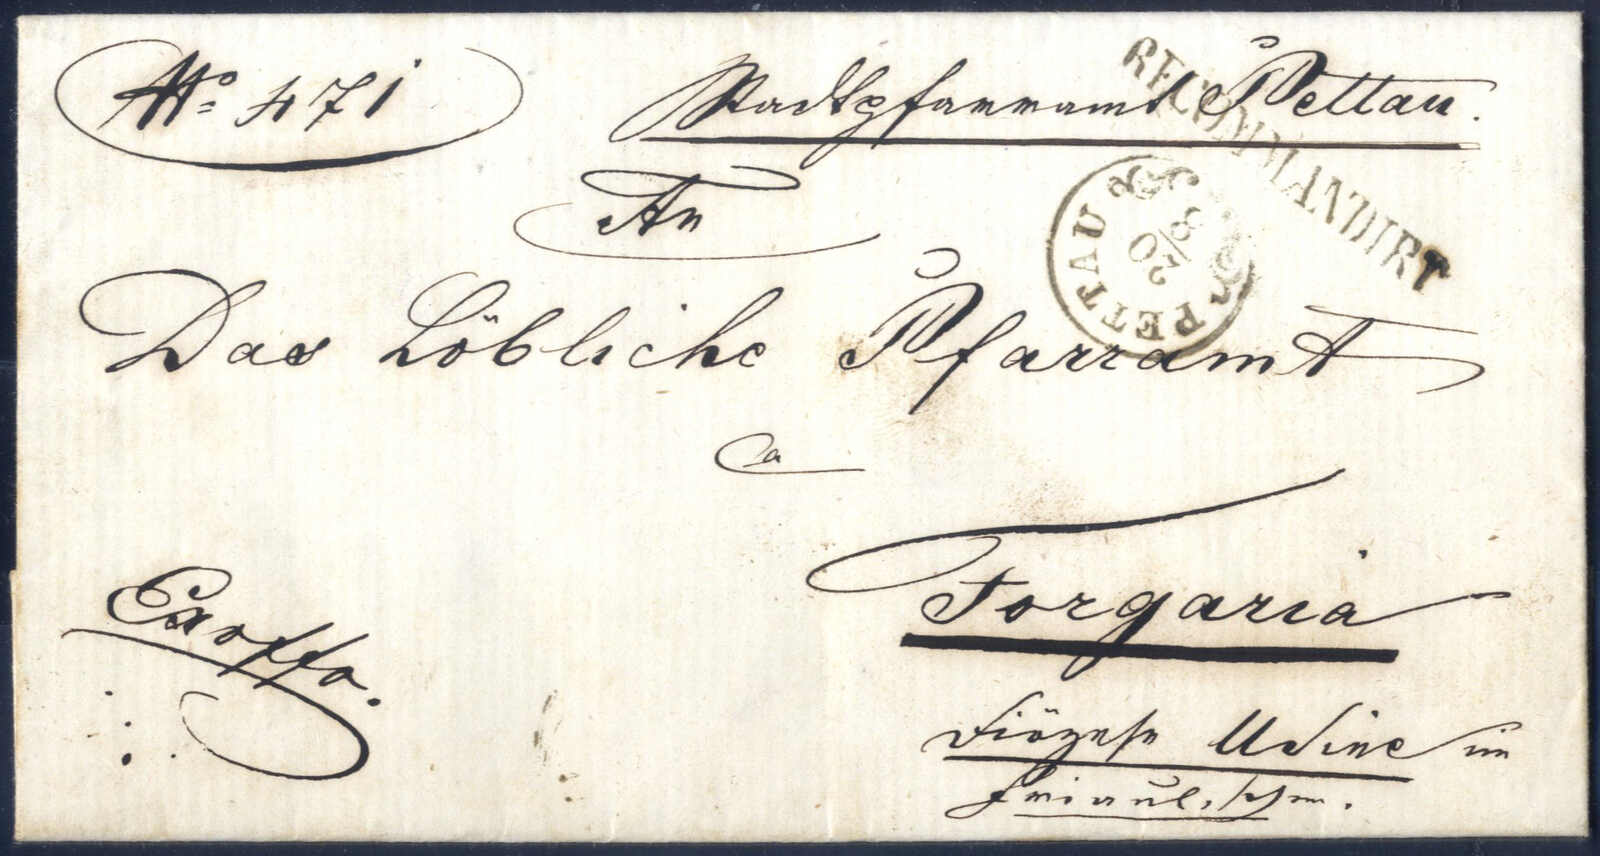 No. 471
Stadtpfarramt Pettau.
RECOMMANDIRT
PETTAU
20/8
An
Das Löbliche Pfarramt
a
Forgaria
Exoffo.
Diözese Udine im
Friaulischen.